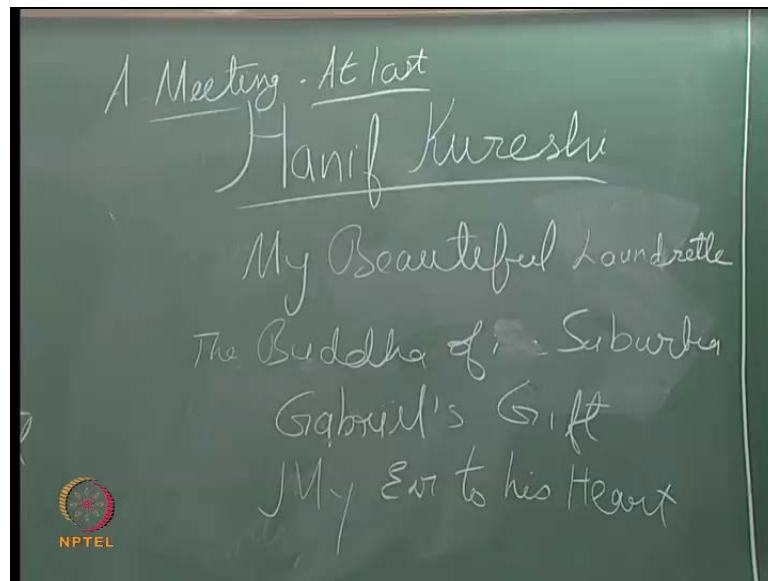 A Meeting. At last
Hanif Kureshi
My Beautiful Laundrette
The Buddha of Suburbia
Gabriel's Gift
My Ear to his Heart
NPTEL